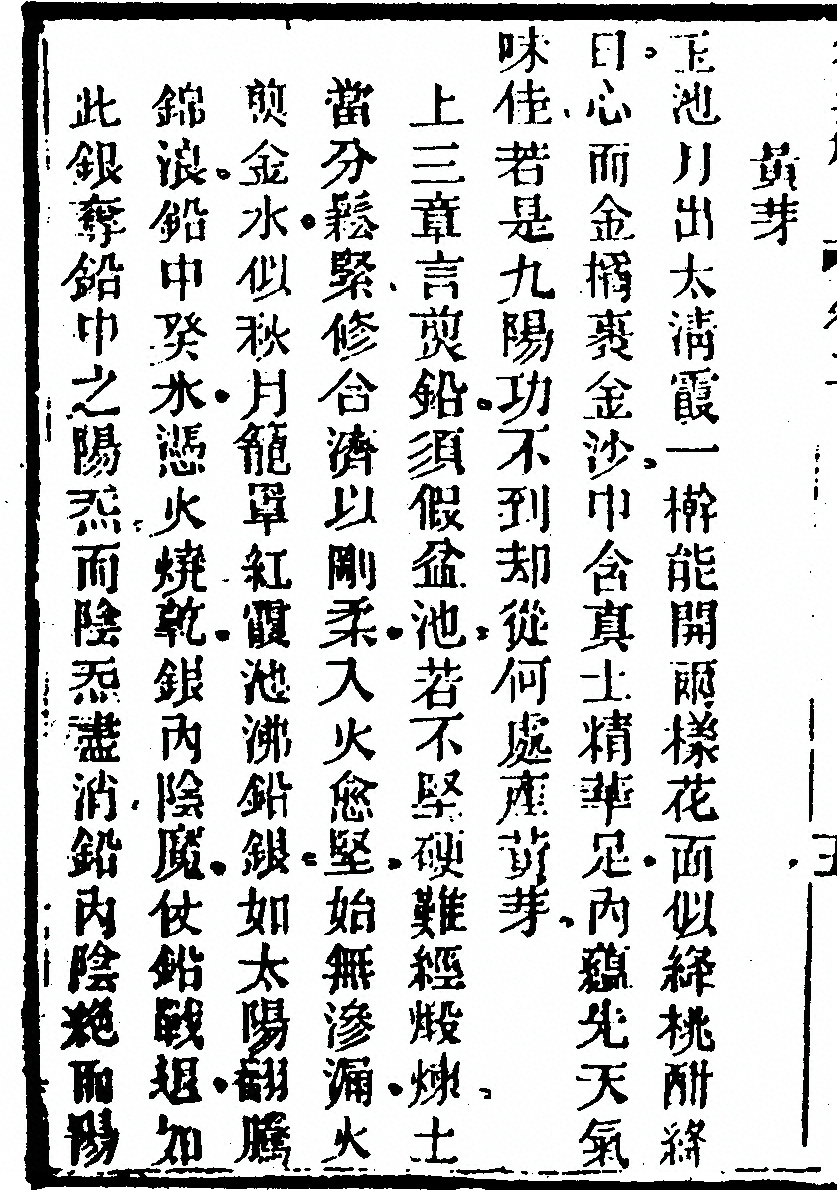 黃芽
玉池月出太淸霞一幹能開兩樣花面似絳桃酣絳
日心而金橘裹金沙中含真土精華足內蘊先天氣
味佳若是九陽功不到却從何處產黃芽
上三章言煎鉛須假盆池若不堅硬難經煅煉土
當分鬆緊修合濟以剛柔入火愈堅始無滲漏火
煎金水似秋月籠罩紅霞池沸鉛銀如太陽翻騰
錦浪鉛中癸水憑火燒乾銀內陰魔仗鉛戰退如
此銀奪鉛中之陽炁而陰炁盡消鉛內陰絕而陽